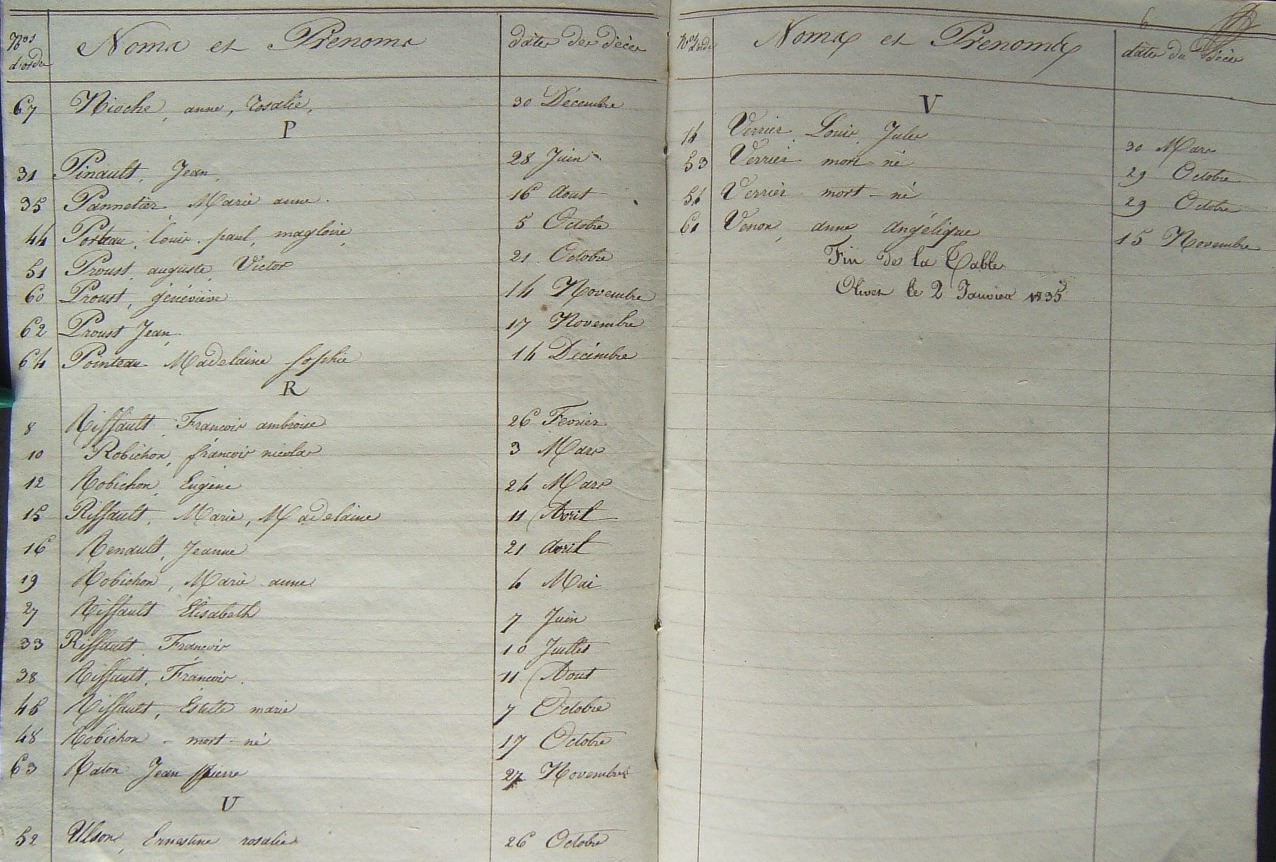 Nos d'ordre Noms et Prenoms date de décès
67 Nioche, anne, Rosalie, 30 Décembre
P
31 Pinault, Jean, 28 Juin
35 Pannetier Marie anne. 16 Aout
44 Porteau, louis, paul, magloire, 5 Octobre
51 Proust, auguste Victor 21 Octobre
60 Proust, géneviève 14 Novembre
62 Proust Jean 17 Novembre
64 Pointeau Madelaine Sophie 14 Décembre
R
8 Riffault, François ambroise 26 Fevrier
10 Robichon, françois nicolas 3 Mars
12 Robichon, Eugène 24 Mars
15 Riffault, Marie, Madelaine 11 Avril
16 Renault, Jeanne 21 Avril
19 Robichon, Marie anne 4 Mai
27 Riffault Elisabeth 7 Juin
33 Riffault, François 10 Juillet
38 Riffault, François. 11 Aout
46 Riffault, Estelle marie 7 Octobre
48 Robichon - mort-né 17 Octobre
63 Raton Jean pierre 27 Novembre
U
52 Ulson, Ernestine rosalie 26 Octobre
Nos d'ordre Noms et Prenoms date du décès
V
14 Verrier, Louis, Jules 30 Mars
53 Verrier mort-né 29 Octobre
54 Verrier mort-né 29 Octobre
61 Venon, anne angélique 15 Novembre
Fin de la Table
Olivet le 2 Janvier 1835